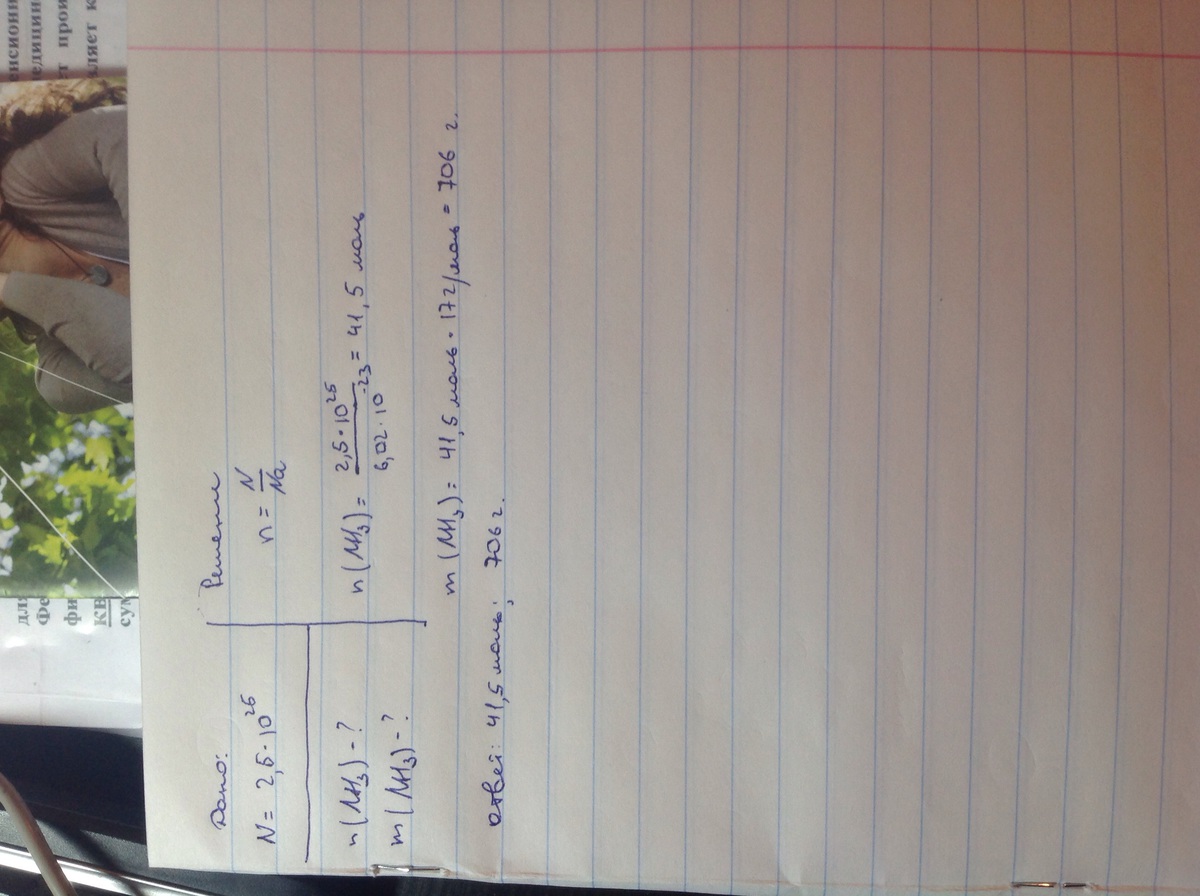 Дано:
N = 2,5·10²⁵
n(NH₃)-?
m(NH₃)-?
Решение
n = N/Na
n(NH₃) = 2,5·10²⁵/6,02·10⁻²³ = 41,5 моль
m(NH₃) = 41,5 моль · 17г/моль = 706 г.
ответ: 41,5 моль; 706 г.
енсион
едицин
про
ляет к
дл
Фе
фи
КВ
сум